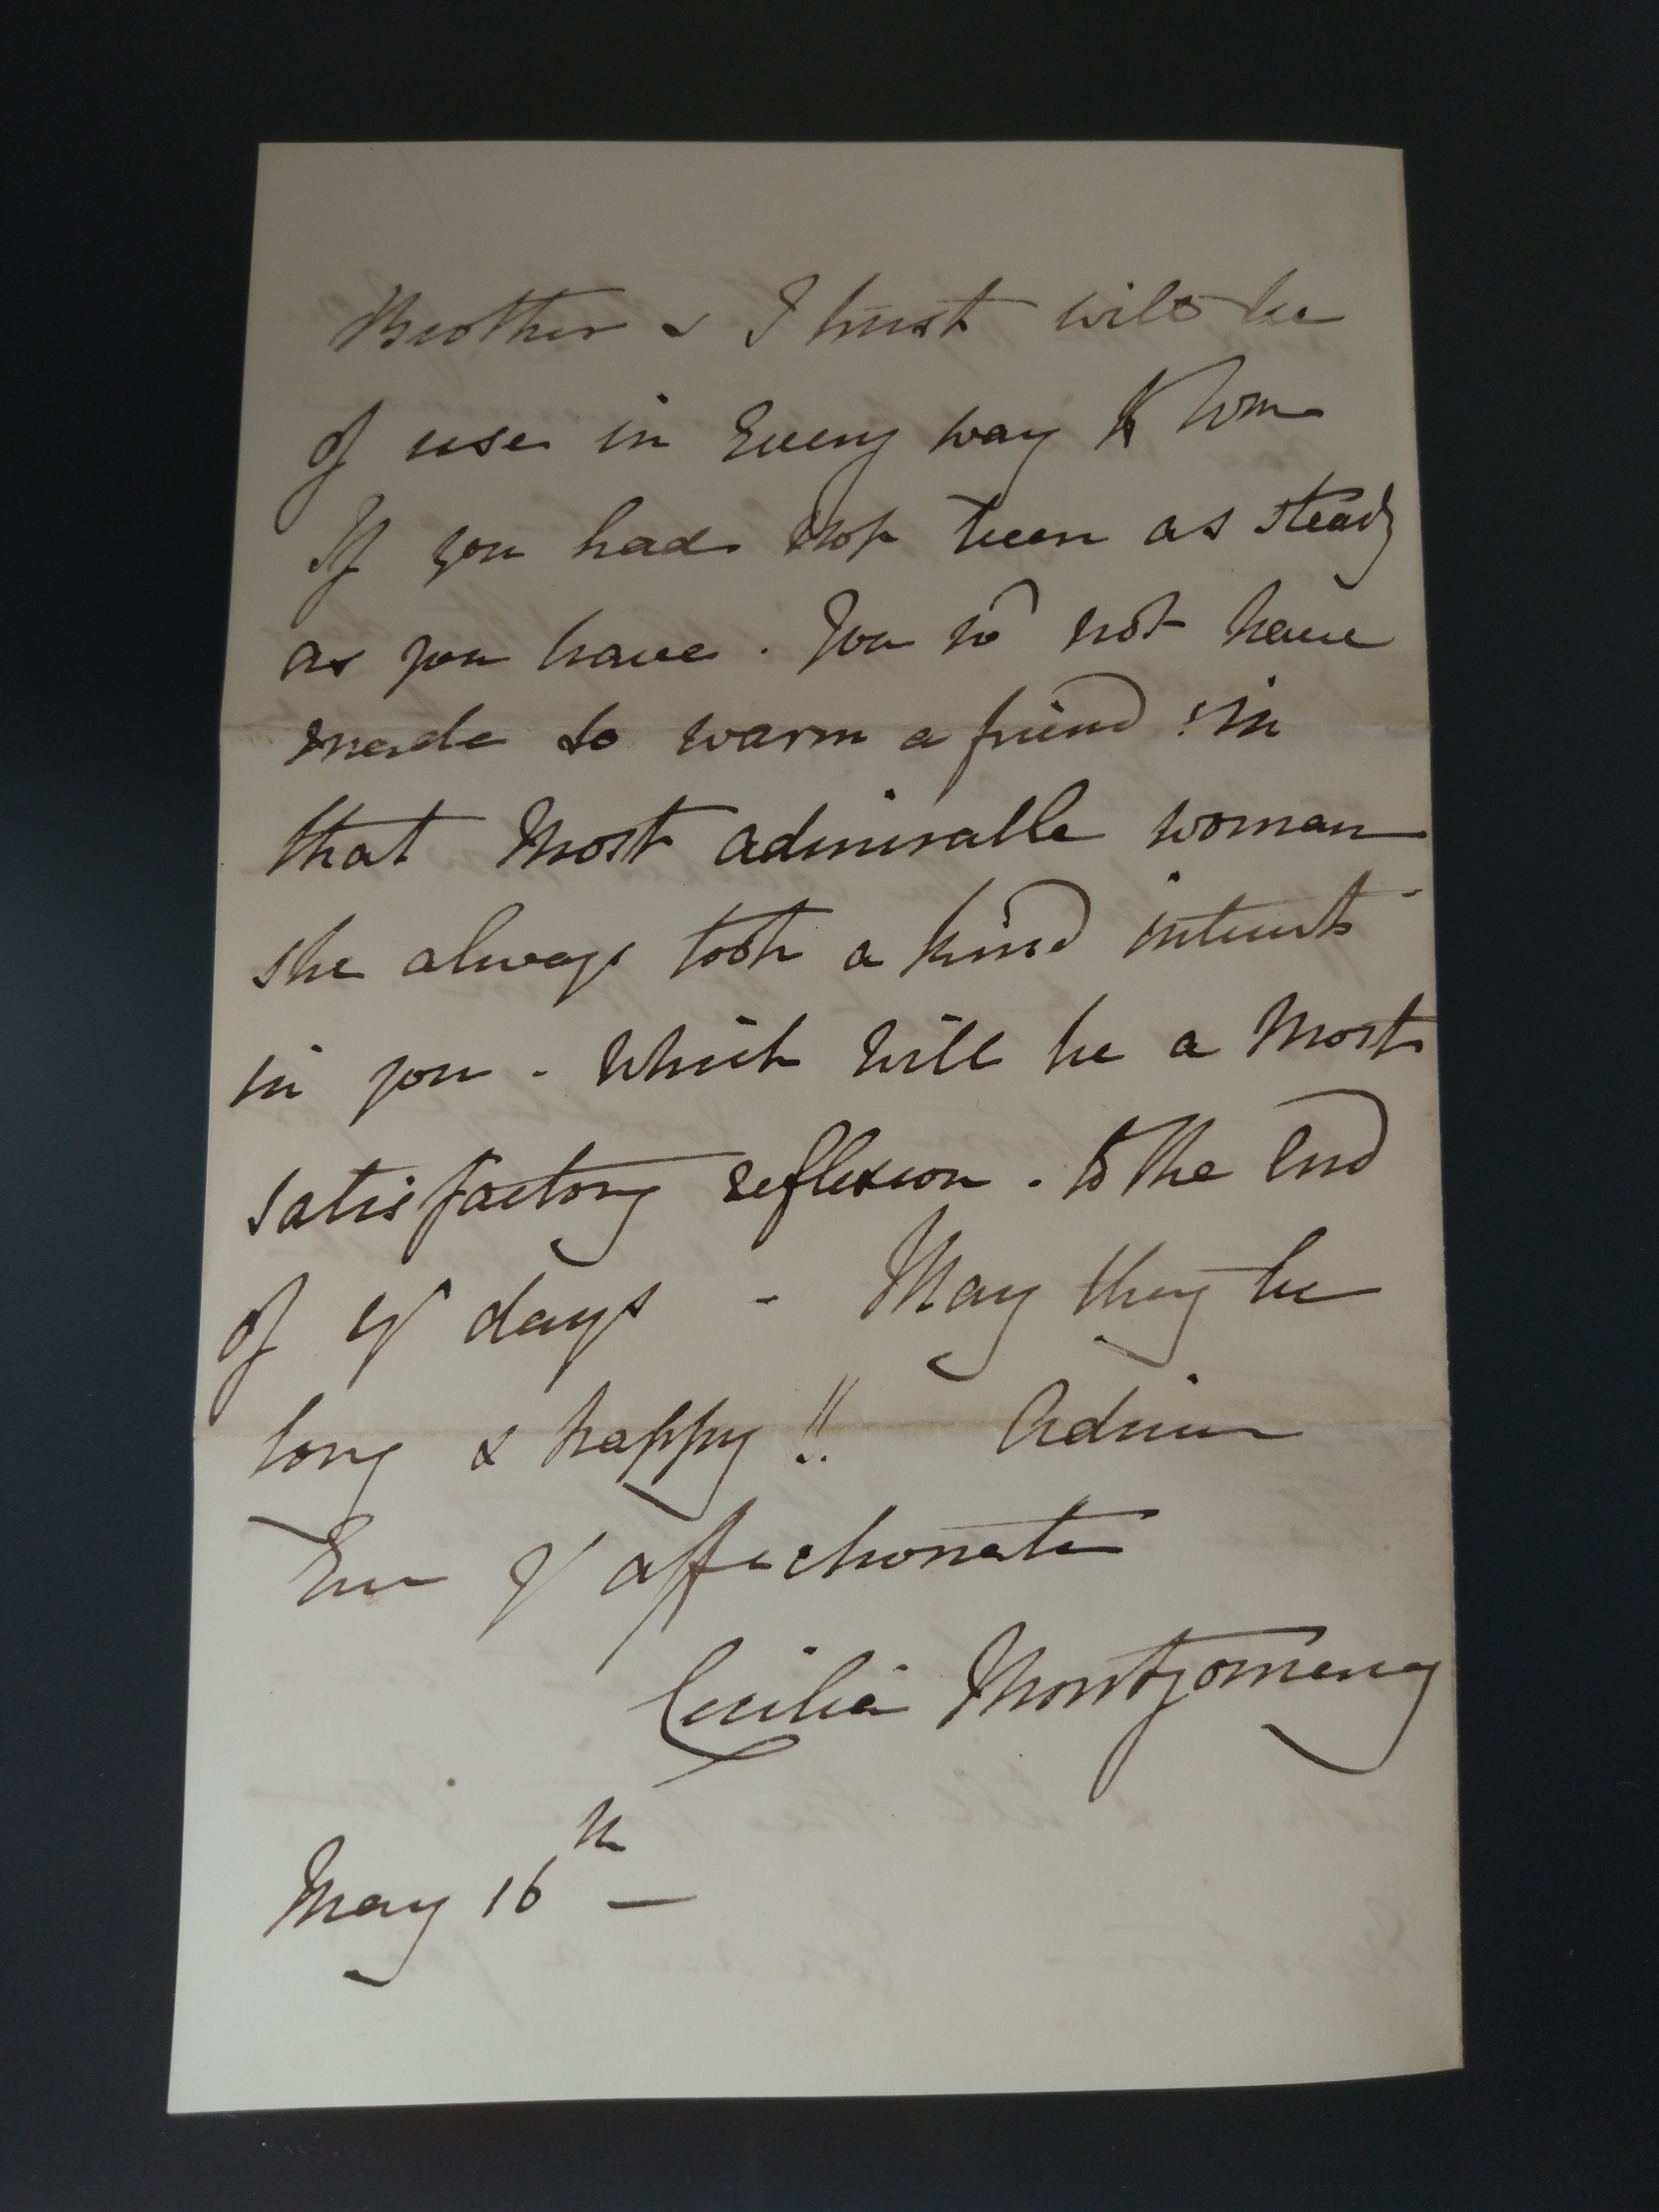 Brother & I trust will be
of use in Every way to
If you had not been as steady
as you have . You wd not have
made so warm a friend ! in
that Most admirable woman
she always took a kind interest
in you - Which will be a Most
satisfactory reflexion . to the End
of yr days - May they be
long & happy !! Adieu
Ever yr affectionate
Cecilia Montgomery
May 16th —